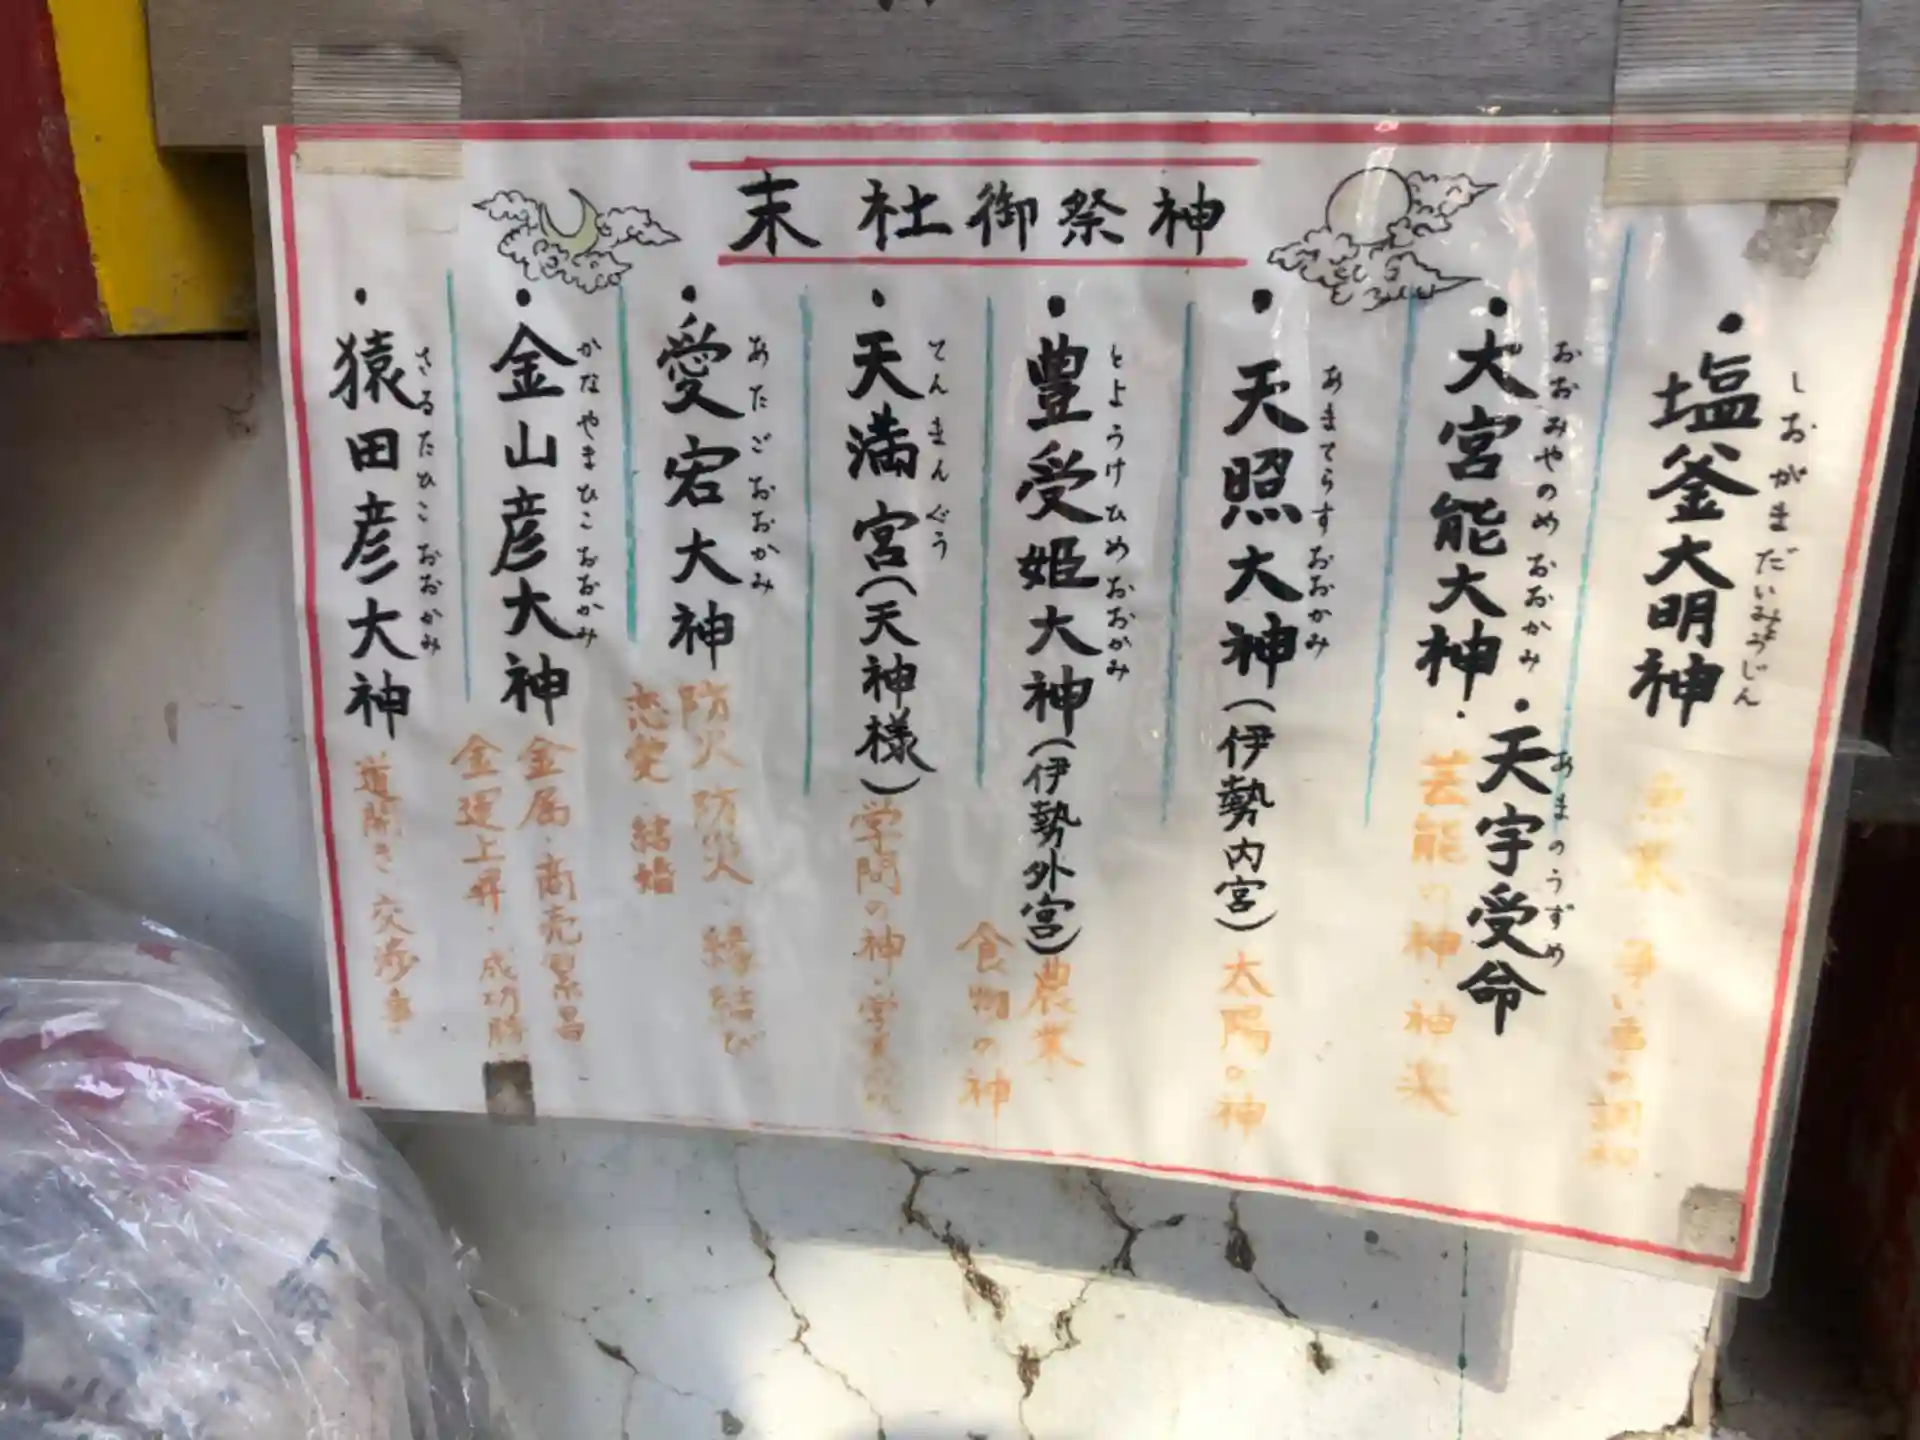 末社御祭神
・塩釜大明神
しおがまだいみょうじん
争い事の調和
・大宮能大神
おおみやのめおおかみ
・天宇受命
あまのうずめ
芸能の神・神楽
・天照大神(伊勢内宮)
あまてらすおおかみ
太陽の神
・豊受姫大神(伊勢外宮)
とようけひめおおがみ
農業・
食物の神
・天満宮(天神様)
てんまんぐう
学問の神・学業
・愛宕大神
あたごおおかみ
防火防災 縁結び
恋愛 結婚
・金山彦大神
かなやまひこおおかみ
金属・商売繁昌
金運上昇・成功勝
・猿田彦大神
さるたひこおおかみ
道開き 交渉事